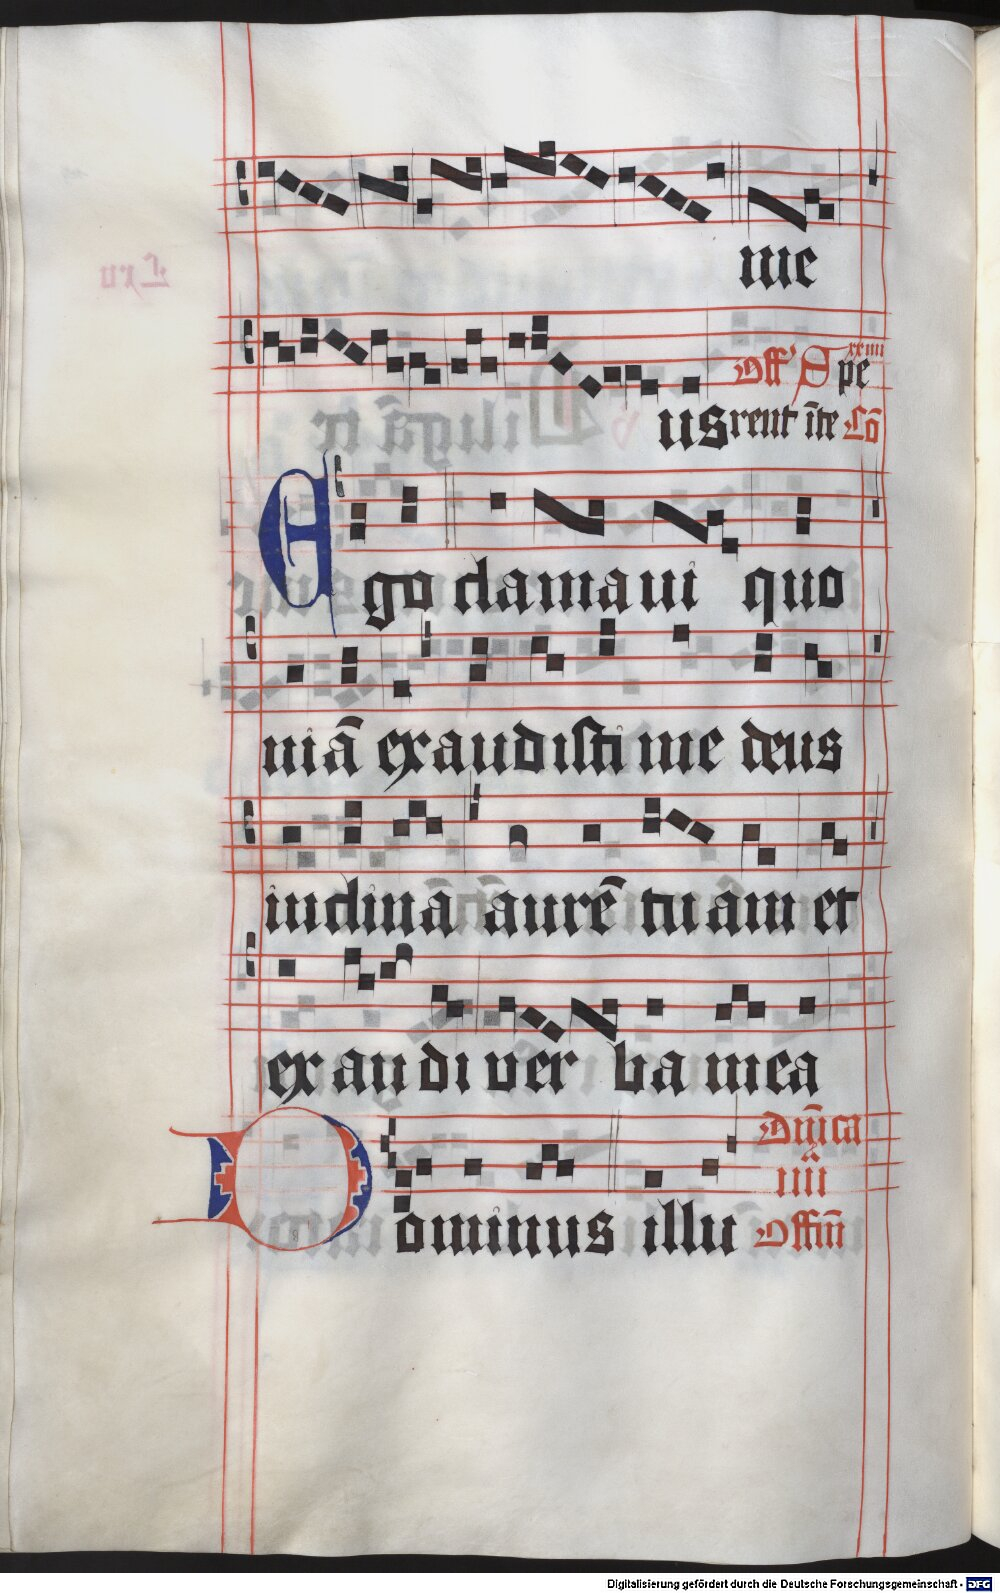 me
Off' S pe xxiiii
us rent ĩ te Cō
Ego clama ui quo
niā exaudisti me deus
inclinā aurē tuam et
ex au di ver ba mea
Dn̄ica
iiii
Dominus illu Offm̄
Digitalisierung gefördert durch die Deutsche Forschungsgemeinschaft - DFG